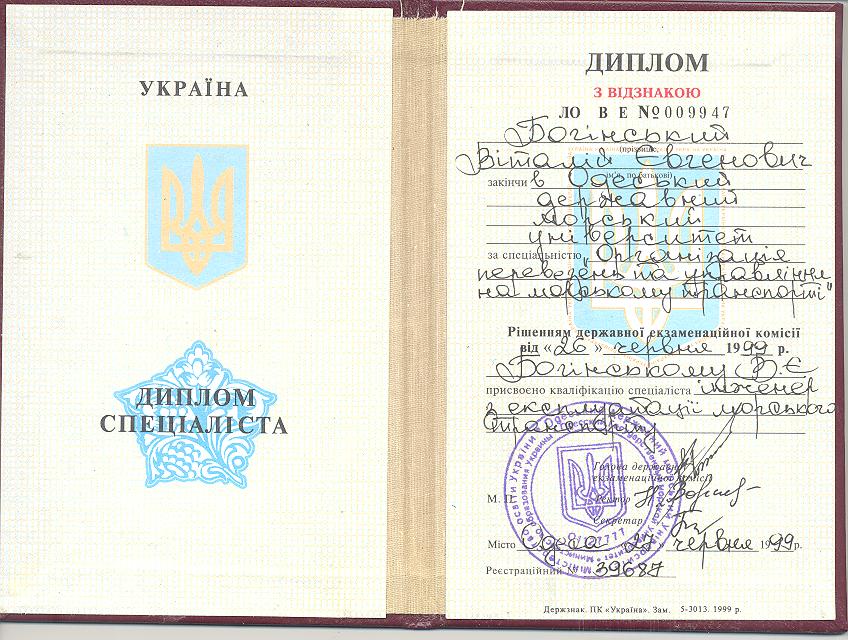 УКРАЇНА
ДИПЛОМ
СПЕЦІАЛІСТА
ДИПЛОМ
З ВІДЗНАКОЮ
ЛО В Е №009947
Богінський
(прізвище,
Віталій Євгенович
ім'я, по батькові)
закінчив Одеський
державний
морський
університет
за спеціальністю „Організація
перевезень та управління
на морському транспорті"
Рішенням державної екзаменаційної комісії
від «26» червня 1999 р.
Богінському В.Є
присвоєно кваліфікацію спеціаліста інженер
з експлуатації морського
транспорту
Голова державної
екзаменаційної комісії
М. П. Ректор
Секретар
Місто Одеса червня 1999 р.
Реєстраційний № 39687
Держзнак. ПК «Україна». Зам. 5-3013. 1999 р.